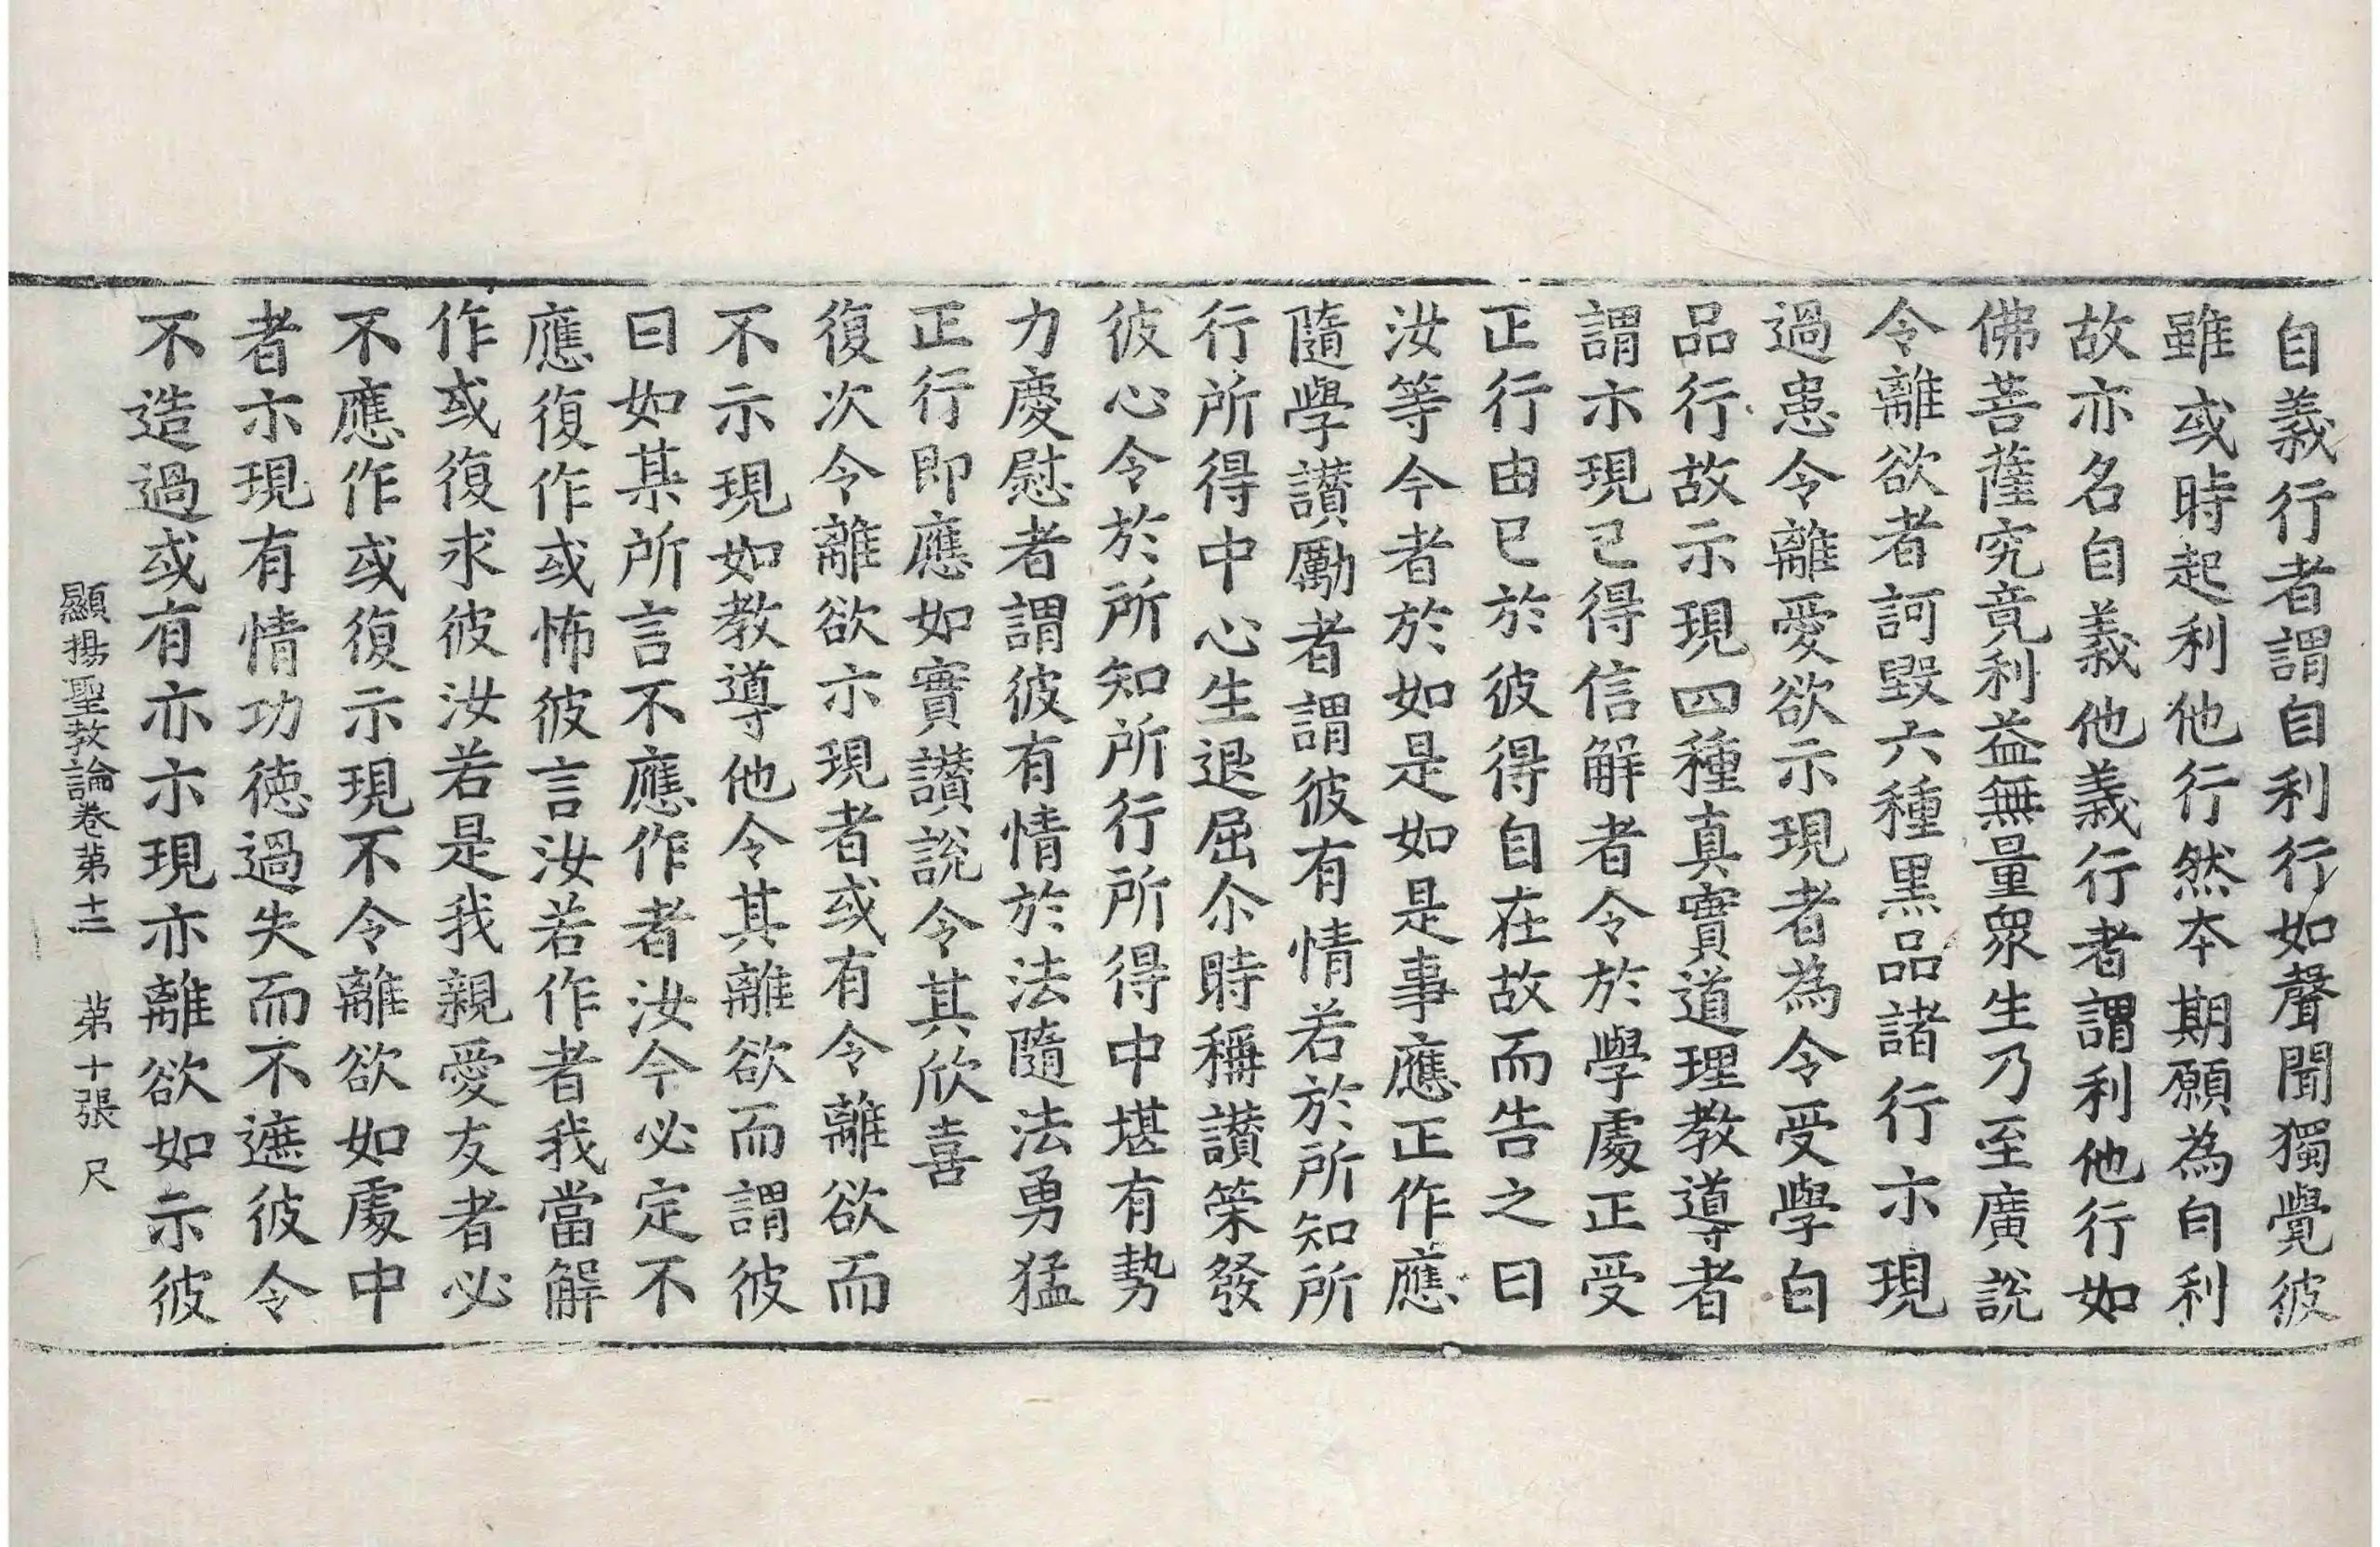 自義行者謂自利行如聲聞獨覺彼
雖或時起利他行然本期願為自利
故亦名自義他義行者謂利他行如
佛菩薩究竟利益無量眾生乃至廣說
令離欲者訶毀六種黑品諸行示現
過患令離愛欲示現者為令受學白
品行故示現四種真實道理教導者
謂示現已得信解者令於學處正受
正行由已於彼得自在故而告之曰
汝等今者於如是如是事應正作應
隨學讃勵者謂彼有情若於所知所
行所得中心生退屈尒時稱讃策發
彼心令於所知所行所得中堪有勢
力慶慰者謂彼有情於法隨法勇猛
正行即應如實讃說令其欣喜
復次令離欲示現者或有令離欲而
不示現如教導他令其離欲而謂彼
曰如某所言不應作者汝今必定不
應復作或怖彼言汝若作者我當解
作或復求彼汝若是我親愛友者必
不應作或復示現不令離欲如處中
者示現有情功德過失而不遮彼令
不造過或有亦示現亦離欲如示彼
顯揚聖教論卷第十二 第十張 尺